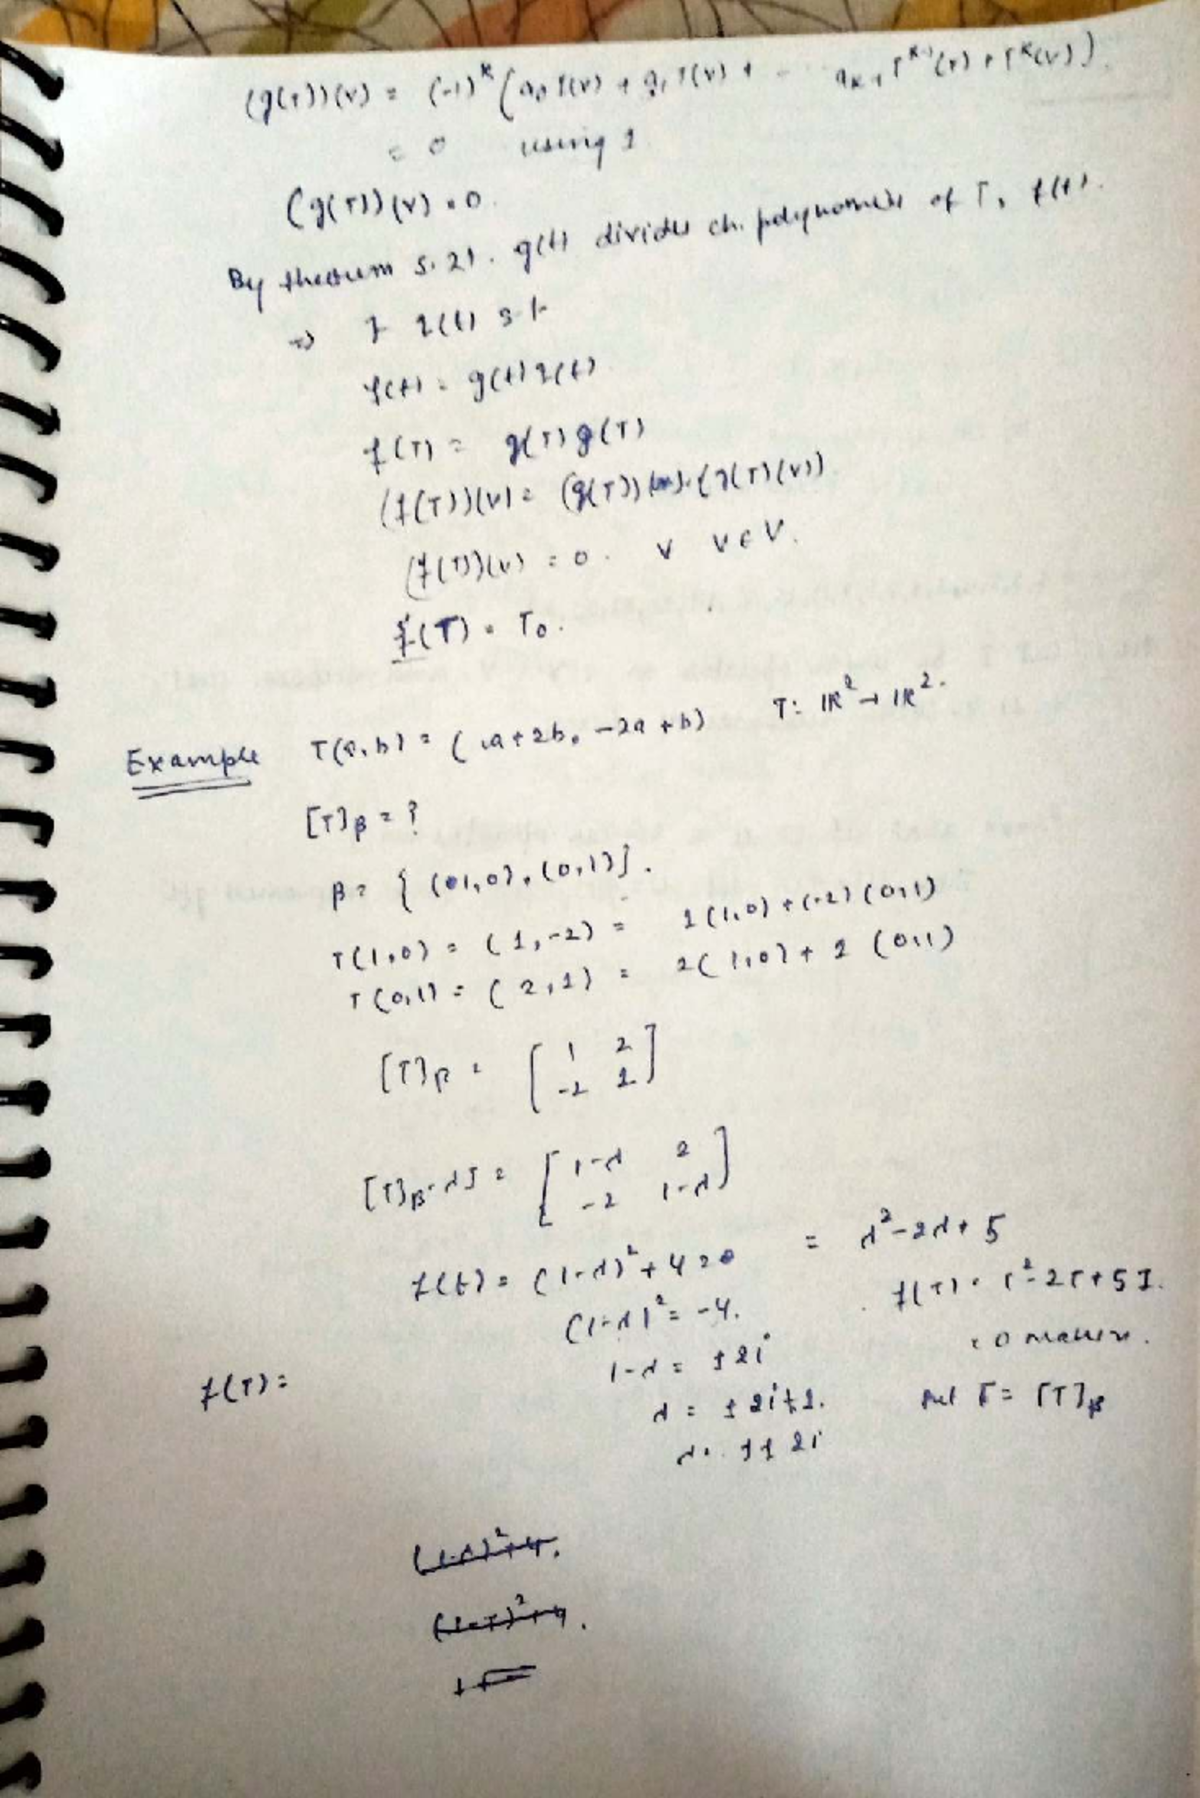 (g(T))(v) = (-1)^k (a0 I(v) + a1 T(v) + - - a_{k-1} T^{k-1}(v) + T^k(v)).
= 0 using 1
(g(T))(v) = 0.
By theorem 5.21. g(t) divides ch. polynomial of T, f(t).
=> ∃ q(t) s.t
f(t) = g(t) q(t)
f(T) = g(T) g(T)
(f(T))(v) = (g(T)) (q(T)(v))
(f(T))(v) = 0. ∀ v ∈ V.
f(T) = T0.
Example T(a,b) = (a+2b, -2a+b) T: IR² → IR².
[T]β = ?
β = { (1,0), (0,1)}.
T(1,0) = (1,-2) = 1(1,0) + (-2) (0,1)
T(0,1) = (2,1) = 2(1,0) + 1 (0,1)
[T]β = [ 1 2
-2 1 ]
[T]β - λI = [ 1-λ 2
-2 1-λ ]
f(t) = (1-λ)² + 4 = 0 = λ² - 2λ + 5
(1-λ)² = -4. f(T) = T² - 2T + 5I.
1-λ = ±2i = 0 matrix.
f(T) = λ = ±2i+1. put T = [T]β
λ = 1 ± 2i
(1-λ)²+4.
(1-T)²+4.